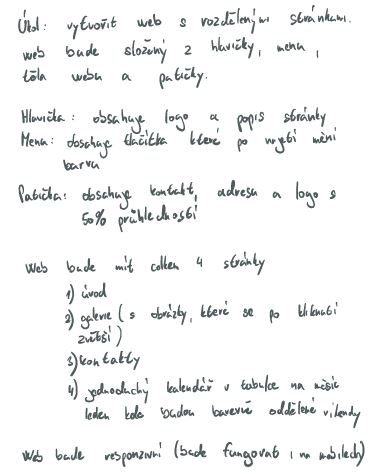 Úkol: vytvořit web s rozdělenými stránkami.
web bude složený z hlavičky, menu,
těla webu a patičky.
Hlavička: obsahuje logo a popis stránky
Menu: obsahuje tlačítka které po najetí mění
barvu
Patička: obsahuje kontakt, adresu a logo s
50% průhledností
Web bude mít celkem 4 stránky
1) úvod
2) galerie (s obrázky, které se po kliknutí
zvětší)
3) kontakty
4) jednoduchý kalendář v tabulce na měsíc
leden kde budou barevně oddělené víkendy
Web bude responzivní (bude fungovat i na mobilech)